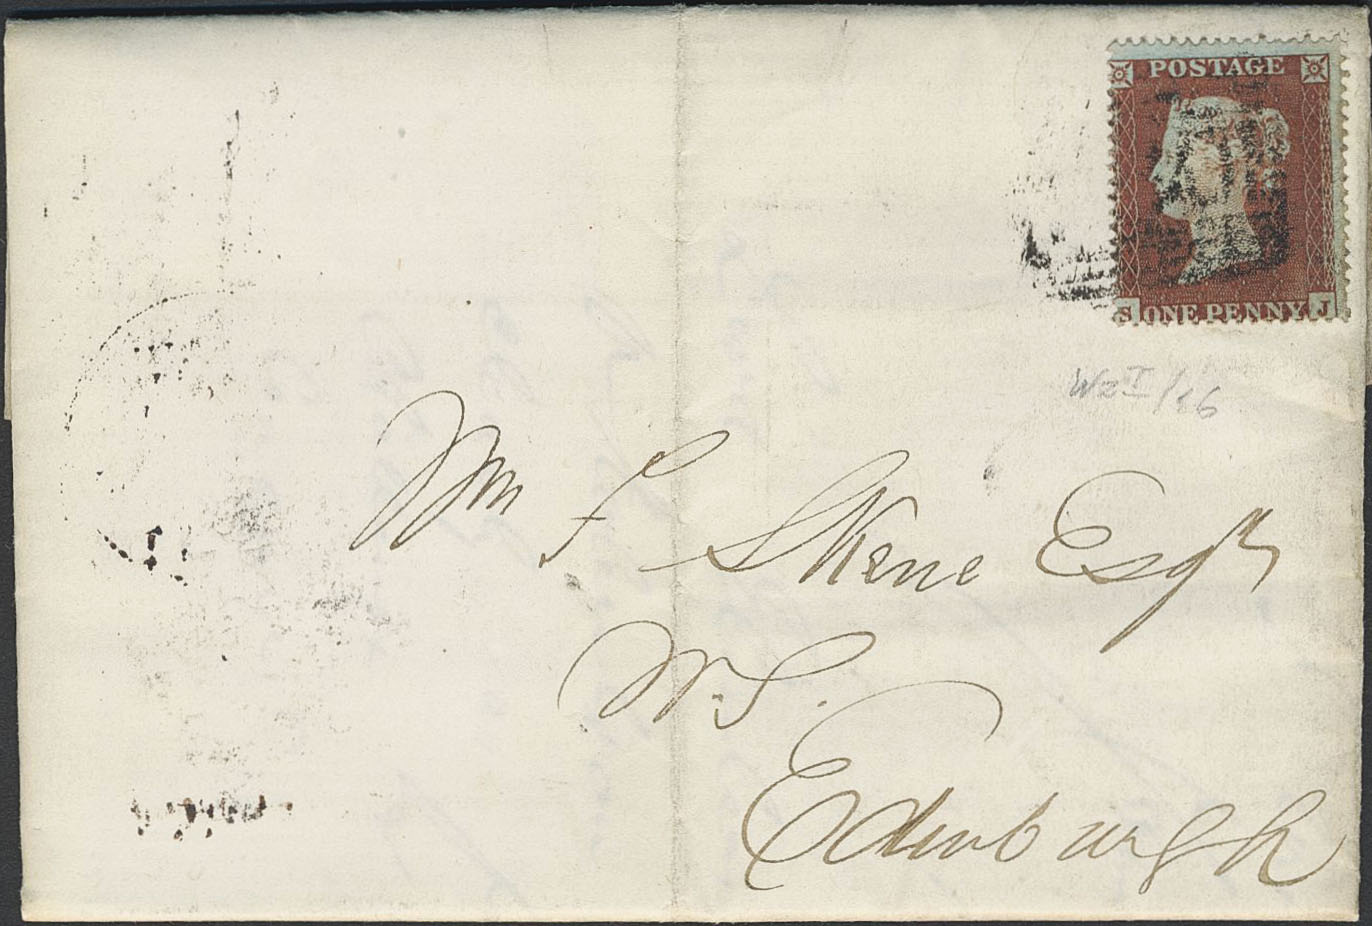 POSTAGE
S ONE PENNY J
Wm F Skene Esqr
W.S.
Edinburgh